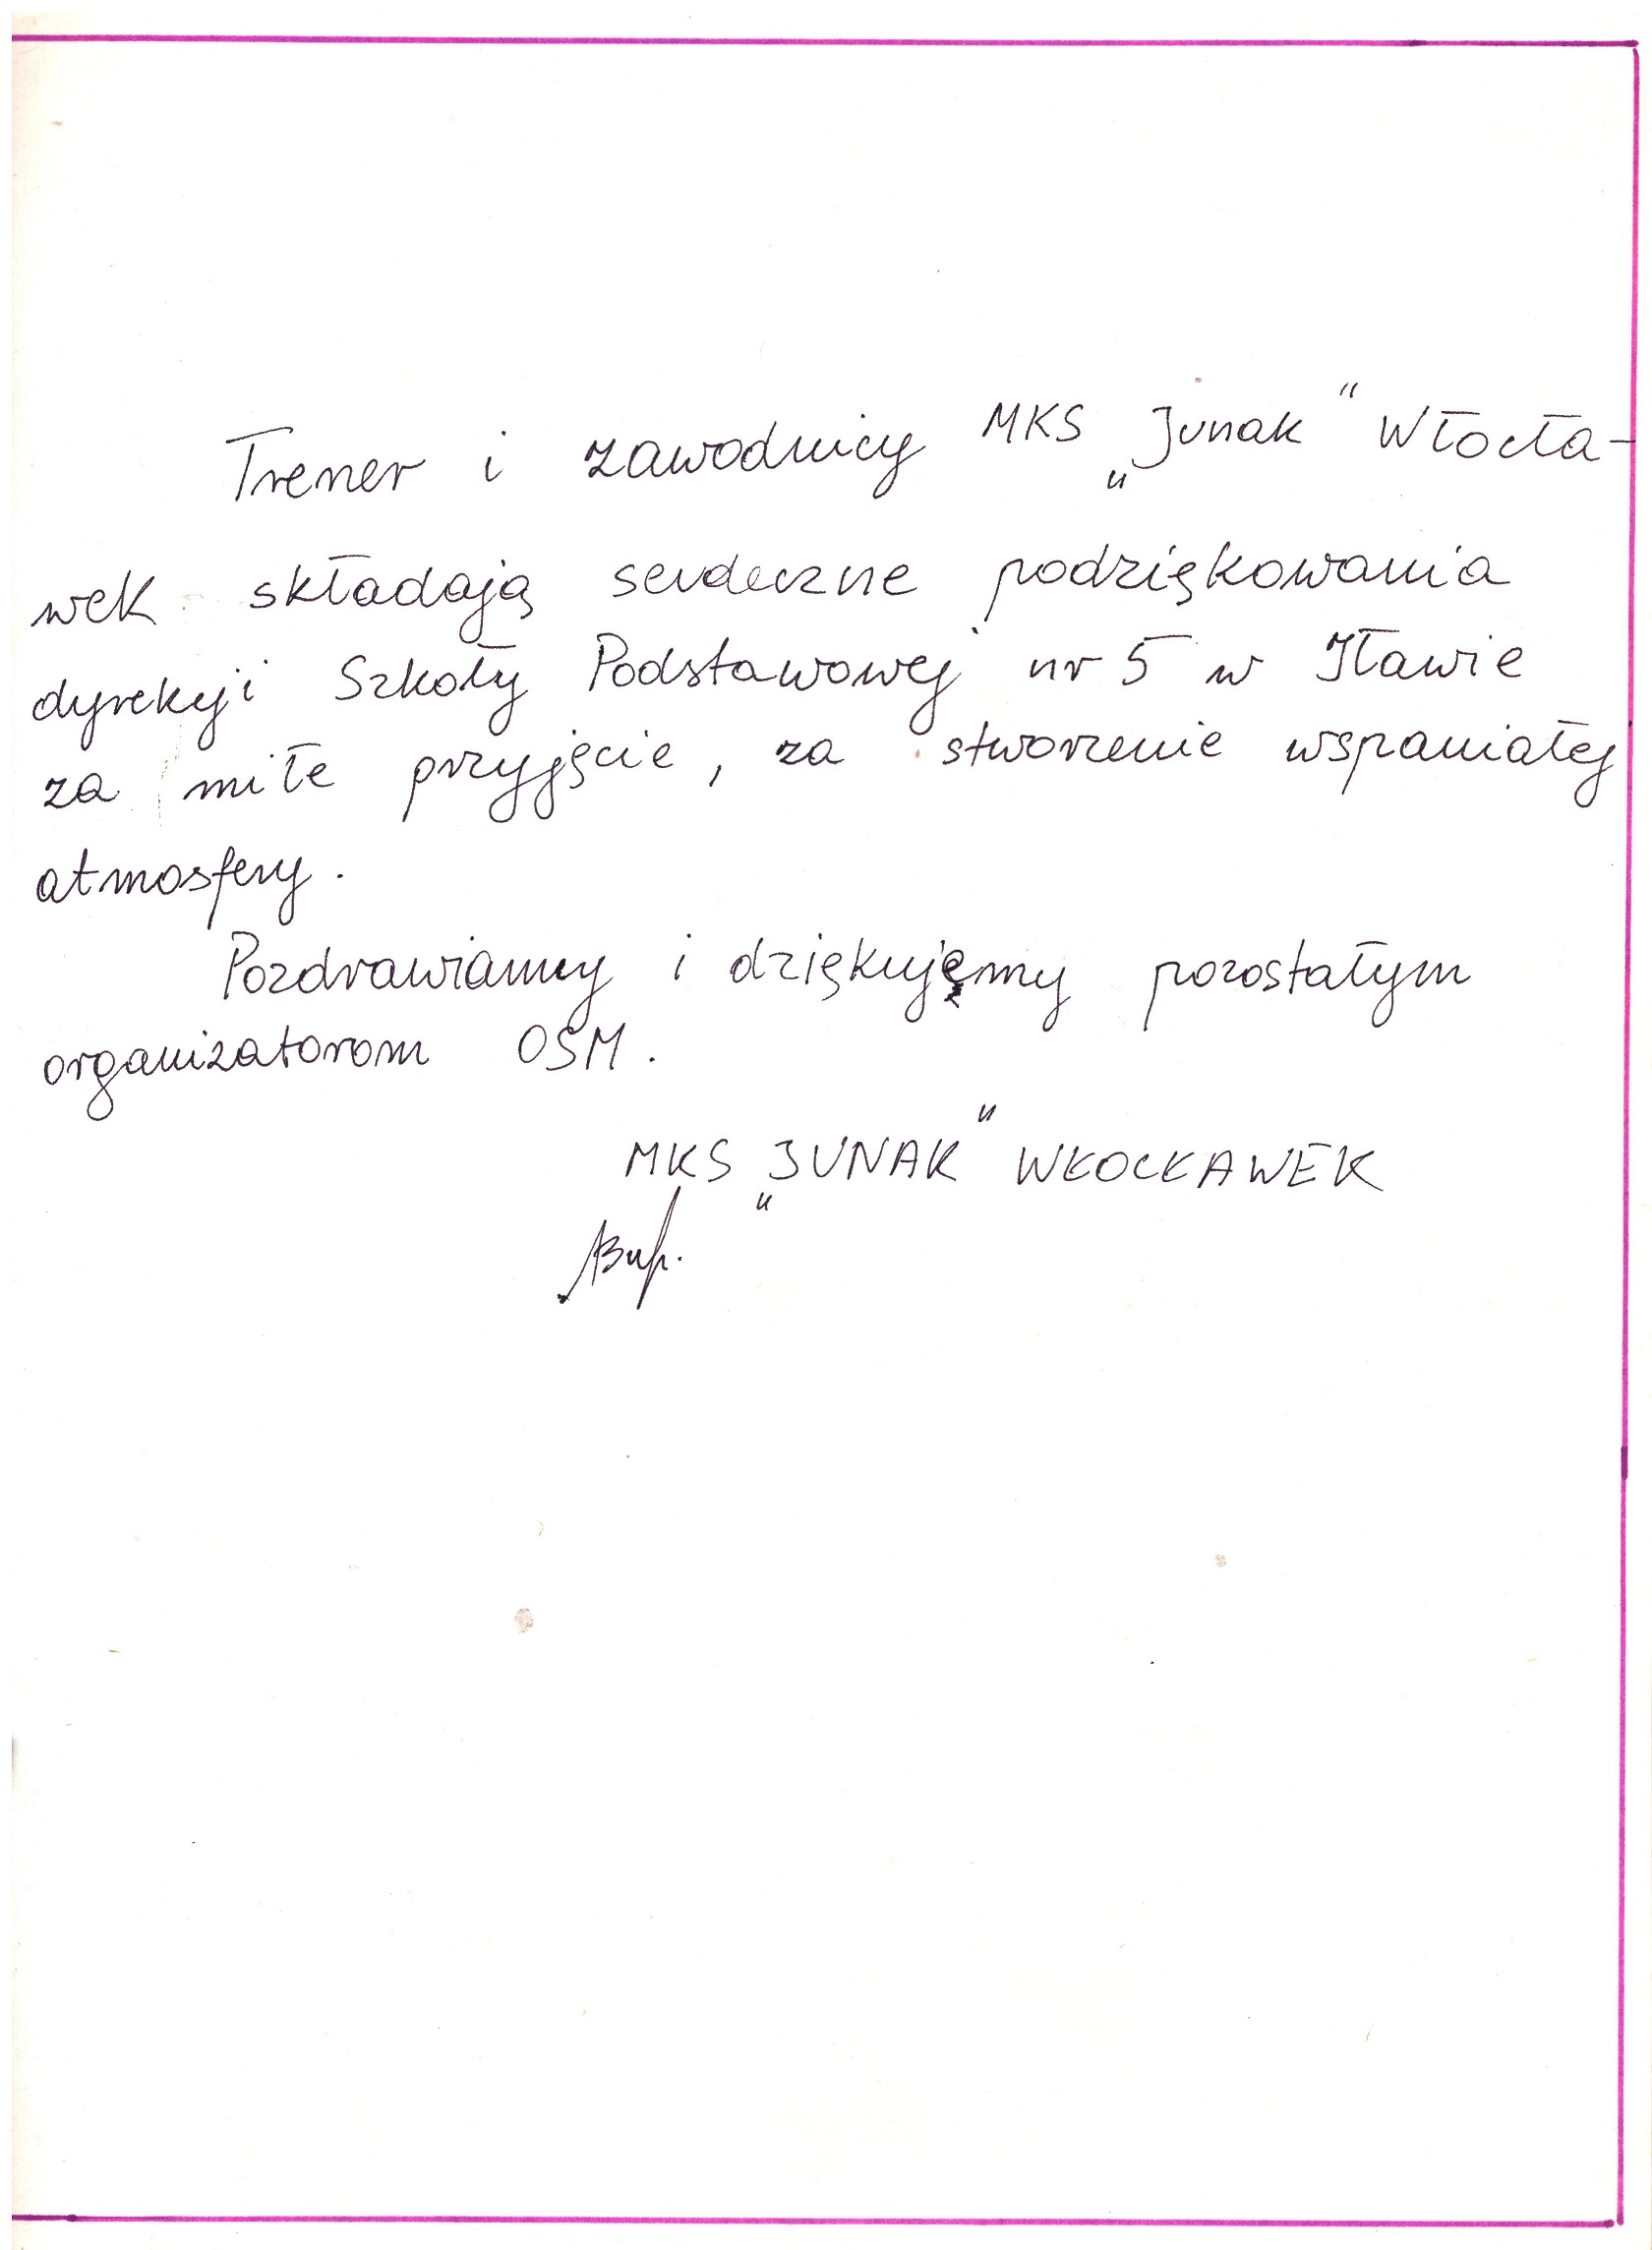 Trener i zawodnicy MKS „Junak” Włocła-
wek składają serdeczne podziękowania
dyrekcji Szkoły Podstawowej nr 5 w Iławie
za miłe przyjęcie, za stworzenie wspaniałej
atmosfery.
Pozdrawiamy i dziękujemy pozostałym
organizatorom OSM.
MKS „JUNAK” WŁOCŁAWEK